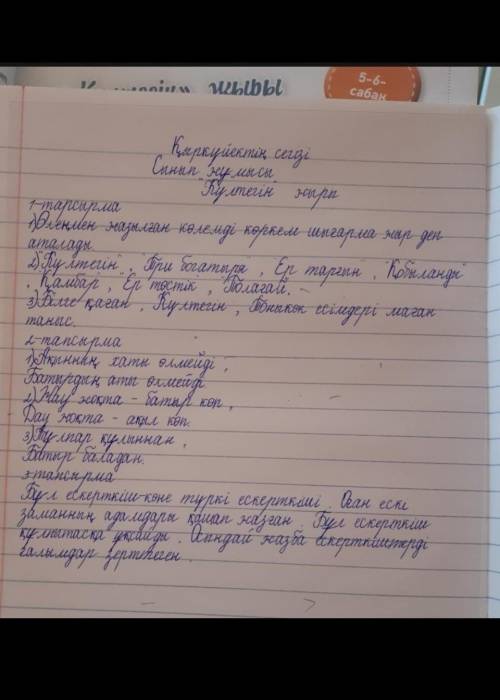 «Күлтегін» жыры
5-6-
сабақ
Қыркүйектің сегізі
Сынып жұмысы
"Күлтегін" жыры
1-тапсырма
1) Өленмен жазылған көлемді көркем шығарма жыр деп
аталады.
2) "Күлтегін", "Три богатыря", "Ер тарғын", "Қобыланды"
, "Қамбар", "Ер төстік", "Толағай".
3) Білге қаған, Күлтегін, Тоныкөк есімдері маған
таныс.
2-тапсырма
1) Ақынның хаты өлмейді,
Батырдың аты өлмейді
2) Жау жоқта - батыр көп,
Дау жоқта - ақыл көп.
3) Тұлпар құлыннан,
Батыр баладан.
3-тапсырма
Бұл ескерткіш-көне түркі ескерткіші. Оған ескі
заманның адамдары қашап жазған. Бұл ескерткіш
құлпытасқа ұқсайды. Осындай жазба ескерткіштерді
ғалымдар зерттеген.